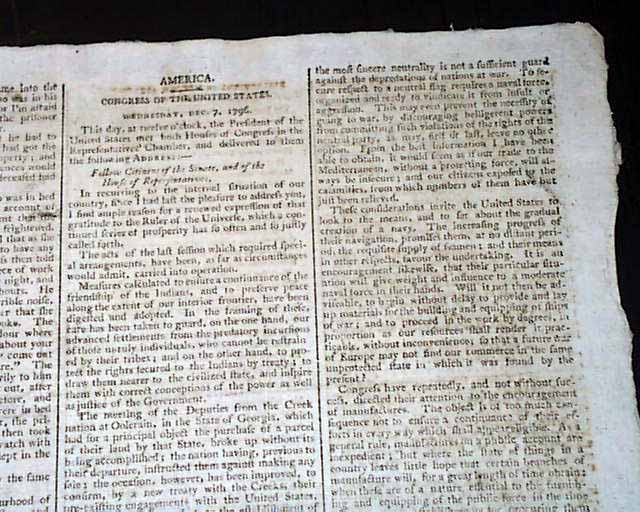 ame into the
o was in his
or I'm afraid
the prisoner
he had to
had got the
perty; and
ances would
deceased had
was in bed
account of
frightened.
that as she
to have any
then told
ece of work
night, and
hours. He
rrible noise,
er that she
oks. The
dour where
about your
come out
are." The
rily to him
out, after
efore, and
were in bed
, the pri-
then took
watch with
kept in the
by the same
ourhood of
AMERICA.
CONGRESS OF THE UNITED STATES.
WEDNESDAY, DEC. 7, 1796.
This day, at twelve o'clock, the President of the
United States met both Houses of Congress in the
Representatives' Chamber, and delivered to them
the following ADDRESS:—
Fellow Citizens of the Senate, and of the
House of Representatives,
In recurring to the internal situation of our
country, since I had last the pleasure to address you,
I find ample reason for a renewed expression of that
gratitude to the Ruler of the Universe, which a con-
tinued series of prosperity has so often and so justly
called forth.
The acts of the last session which required speci-
al arrangements, have been, as far as circumstances
would admit, carried into operation.
Measures calculated to ensure a continuance of the
friendship of the Indians, and to preserve peace
along the extent of our interior frontier, have been
digested and adopted. In the framing of these,
care has been taken to guard, on the one hand, our
advanced settlements from the predatory incursions
of those unruly individuals, who cannot be restrain
ed by their tribes; and on the other hand, to pro-
tect the rights secured to the Indians by treaty; to
draw them nearer to the civilized state, and inspire
them with correct conceptions of the power as well
as justice of the Government.
The meeting of the Deputies from the Creek
nation at Colerain, in the State of Georgia, which
had for a principal object the purchase of a parcel
of their land by that State, broke up without its
being accomplished; the nation having, previous to
their departure, instructed them against making any
sale; the occasion, however, has been improved, to
confirm, by a new treaty with the Creeks, their
pre-existing engagements with the United States,
the most sincere neutrality is not a sufficient guard
against the depredations of nations at war. To se-
cure respect to a neutral flag requires a naval force,
organized and ready to vindicate it from insult or
aggression. This may even prevent the necessity of
going to war, by discouraging belligerent powers
from committing such violations of the rights of the
neutral party, as may, first or last, leave no other
option. From the best information I have been
able to obtain, it would seem as if our trade to the
Mediterranean, without a protecting force, will al-
ways be insecure, and our citizens exposed to the
calamities, from which numbers of them have but
just been relieved.
These considerations invite the United States to
look to the means, and to set about the gradual
creation of a navy. The increasing progress of
their navigation, promises them, at no distant peri-
od, the requisite supply of seamen; and their means
in other respects, favour the undertaking. It is an
encouragement likewise, that their particular situ-
ation will give weight and influence to a moderate
naval force in their hands. Will it not then be ad-
viseable, to begin without delay to provide and lay
up materials for the building and equipping of ships
of war; and to proceed in the work by degrees, in
proportion as our resources shall render it prac-
ticable without inconvenience; so that a future war
of Europe may not find our commerce in the same
unprotected state in which it was found by the
present?
Congress have repeatedly, and not without suc-
cess, directed their attention to the encouragement
of manufactures. The object is of too much con-
sequence not to ensure a continuance of their ef-
forts in every way which shall appear eligible. As a
general rule, manufactures on a public account are
inexpedient; but where the state of things in a
country leaves little hope that certain branches of
manufacture will, for a great length of time obtain;
when these are of a nature essential to the furnish-
ing and equipping of the public force in the time